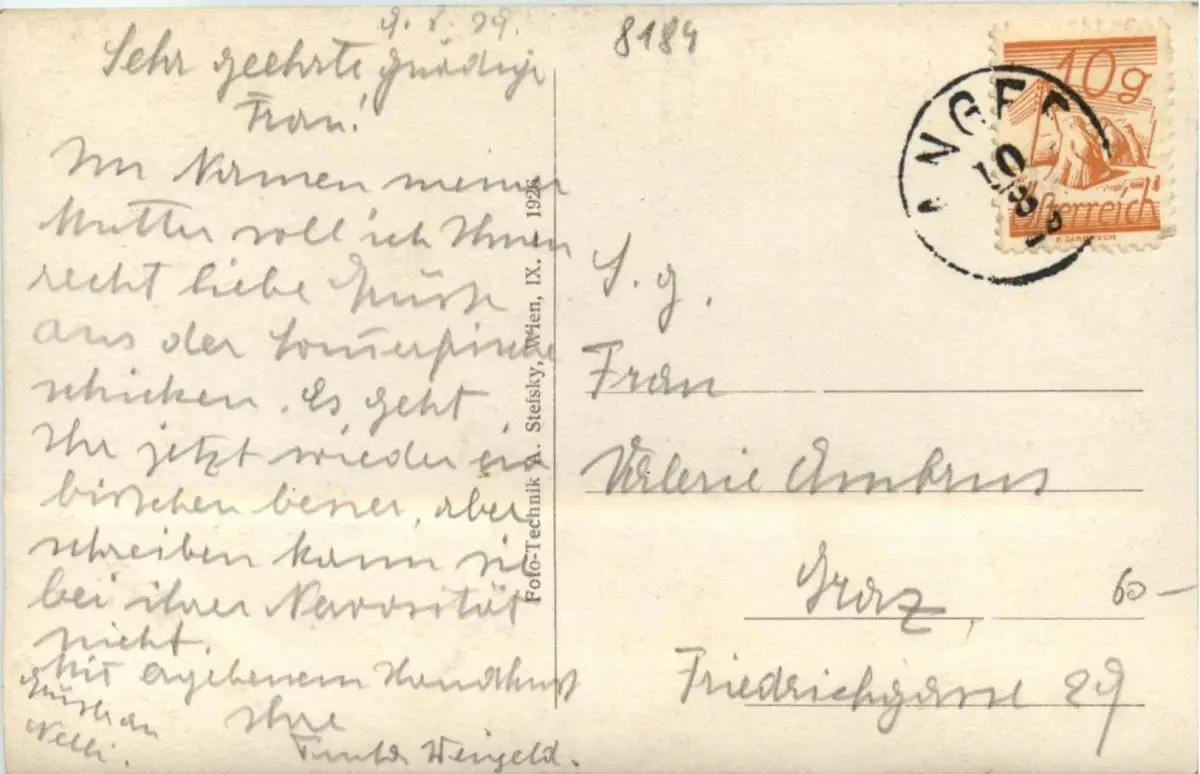 8184
Sehr geehrte gnädige
Frau!
Im Namen meiner
Mutter soll ich Ihnen
recht liebe Grüße
aus der
schicken. Es geht
Ihr jetzt wieder ein
bisschen besser, aber
schreiben kann sie
bei ihrer Nervosität
nicht.
Mit ergebenem Handkuss
Ihre
Weigeld.
Grüsse an
Nelli.
Foto-Technik A. Stefsky, Wien, IX. 1926
ANGER
10g
Österreich
S. g.
Frau
Valerie Ambrus
Graz,
60-
Friedrichgasse 29